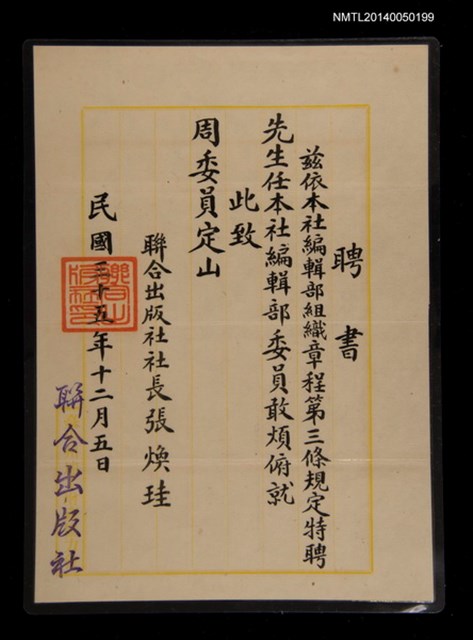 NMTL20140050199
聘書
茲依本社編輯部組織章程第三條規定特聘
先生任本社編輯部委員敢煩俯就
此致
周委員定山
聯合出版社社長張煥珪
民國三十五年十二月五日
聯合出版社